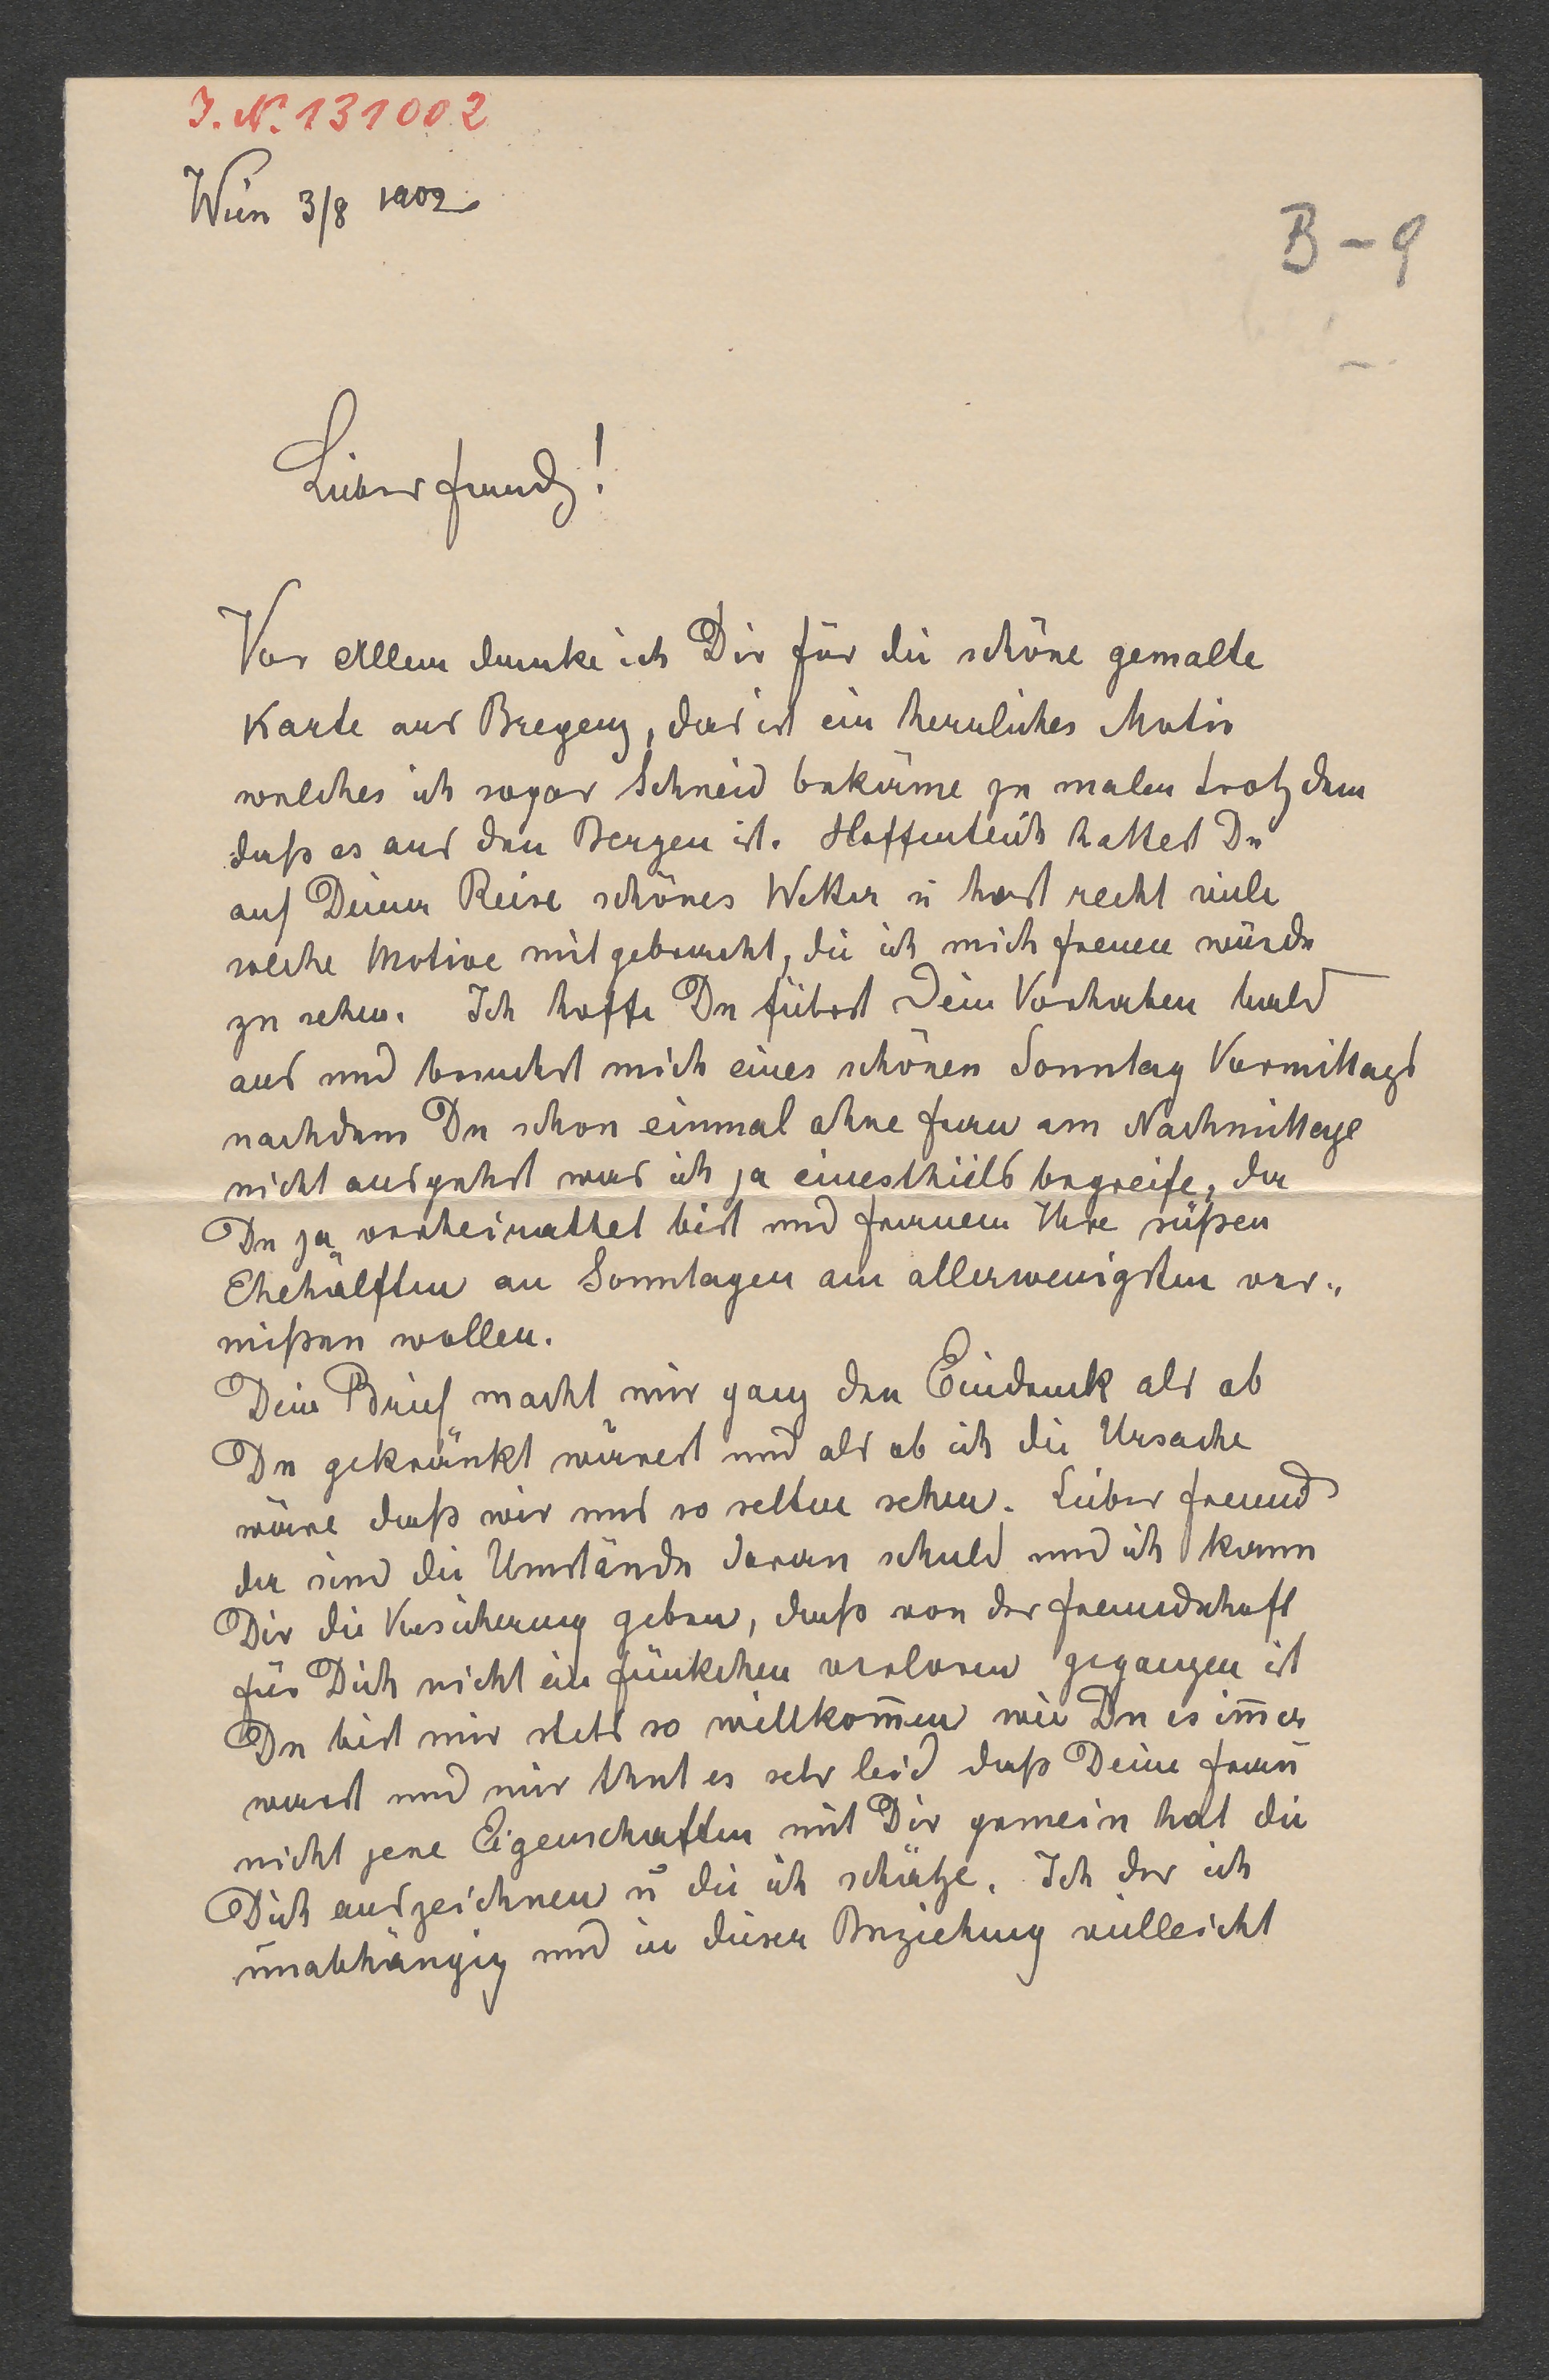 J. N. 131002
Wien 3/8 1902
B-9
Lieber Freund!
Vor Allem danke ich Dir für die schöne gemalte
Karte aus Bregenz, das ist ein herrliches Motiv
welches ich sogar Schneid bekäme zu malen trotzdem
daß es aus den Bergen ist. Hoffentlich hattest Du
auf Deiner Reise schönes Wetter u hast recht viele
solche Motive mitgebracht, die ich mich freuen würde
zu sehen. Ich hoffe Du führst Dein Vorhaben bald
aus und besuchst mich eines schönen Sonntag Vormittags
nachdem Du schon einmal ohne Frau am Nachmittage
nicht ausgehst was ich ja einestheils begreife, da
Du ja verheirathet bist und Frauen Ihre süßen
Ehehälften an Sonntagen am allerwenigsten ver„
mißen wollen.
Dein Brief macht mir ganz den Eindruck als ob
Du gekränkt wärest und als ob ich die Ursache
wäre daß wir uns so selten sehen. Lieber Freund
da sind die Umstände daran schuld und ich kann
Dir die Versicherung geben, daß von der Freundschaft
für Dich nicht ein Fünkchen verloren gegangen ist
Du bist mir stets so willkom̄en wie Du es im̄er
warst und mir thut es sehr leid daß Deine Frau
nicht jene Eigenschaften mit Dir gemein hat die
Dich auszeichnen u die ich schätze. Ich der ich
unabhängig und in dieser Beziehung vielleicht